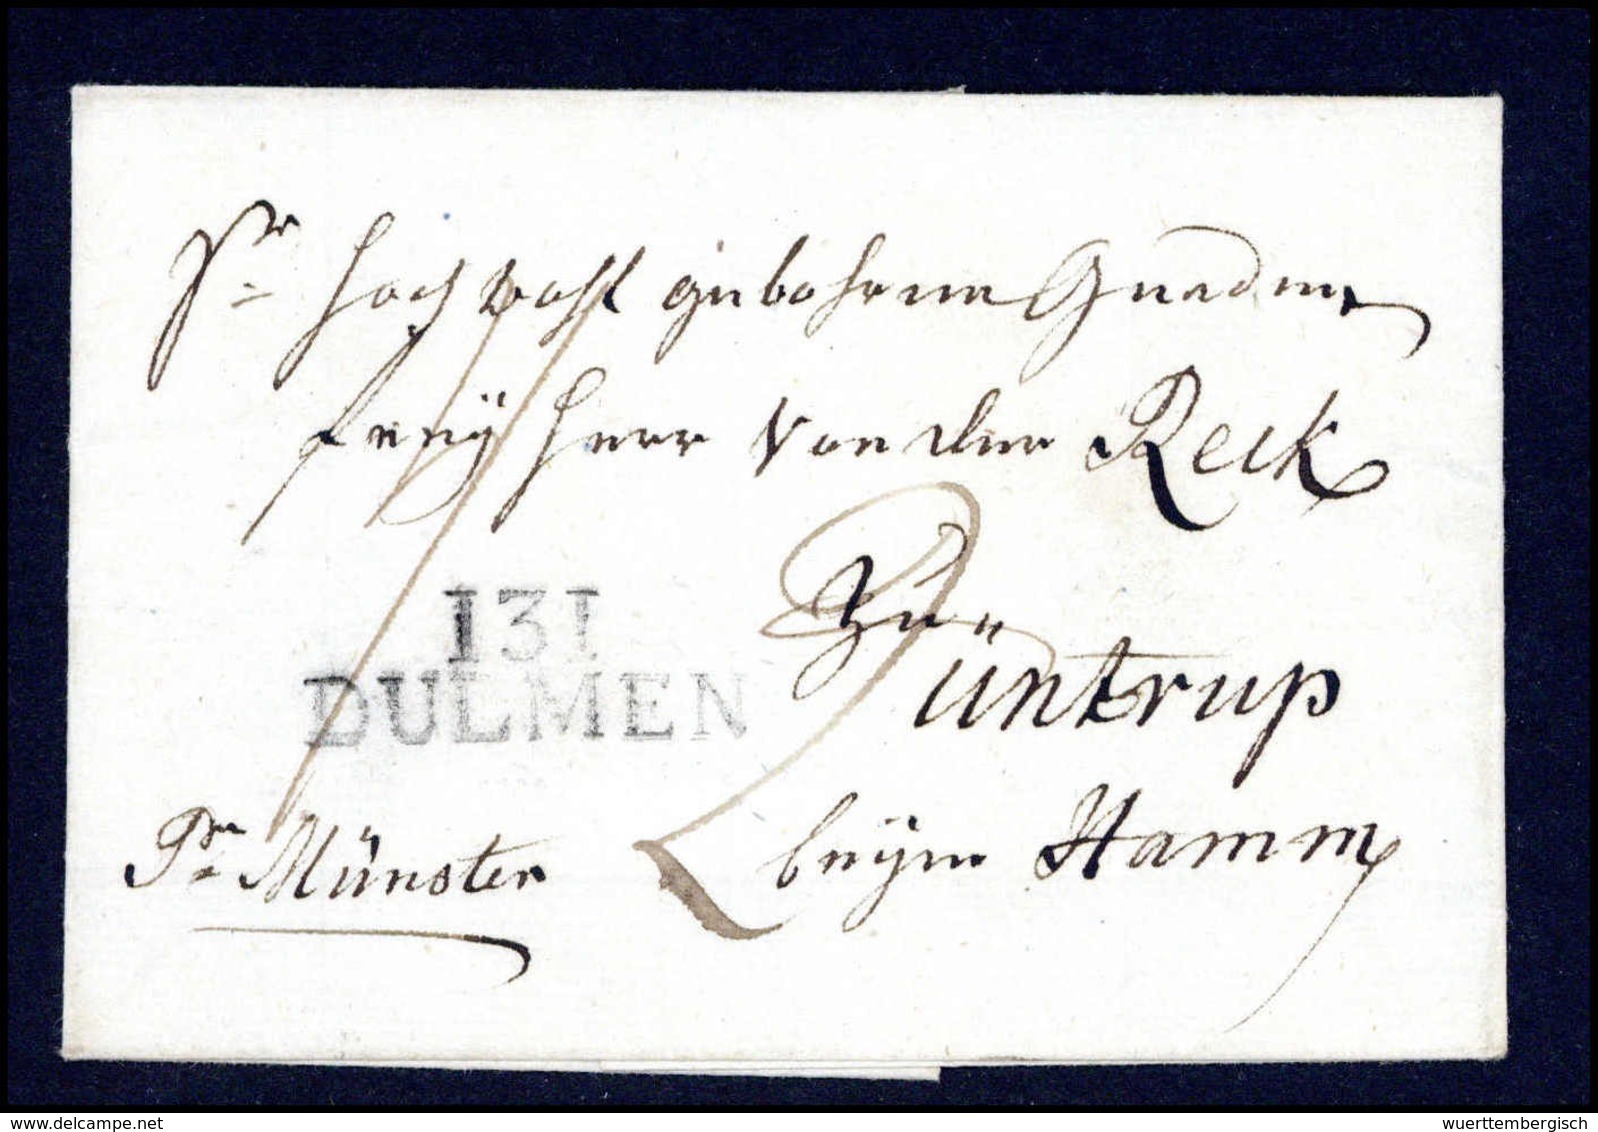 Sr hochwohl gebohrene Gnaden
freÿ herr von der Reck
zu
üntrup
beÿm Hamm
131
DULMEN
Pr Münster
delcampe.net
wuerttembergisch